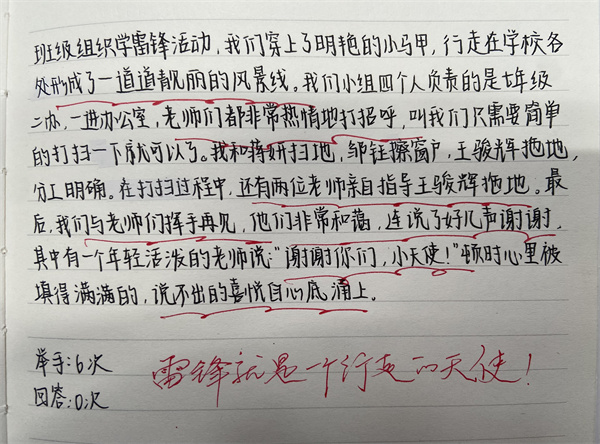 班级组织学雷锋活动，我们穿上了明艳的小马甲，行走在学校各
处形成了一道道靓丽的风景线。我们小组四个人负责的是七年级
二办，一进办公室，老师们都非常热情地打招呼，叫我们只需要简单
的打扫一下就可以了。我和蒋妍扫地，邹钰擦窗户，王骏辉拖地，
分工明确。在打扫过程中，还有两位老师亲自指导王骏辉拖地。最
后，我们与老师们挥手再见，他们非常和蔼，连说了好几声谢谢，
其中有一个年轻活泼的老师说："谢谢你们，小天使！"顿时心里被
填得满满的，说不出的喜悦自心底涌上。
举手：6次
回答：0次
雷锋就是一个行走的天使！